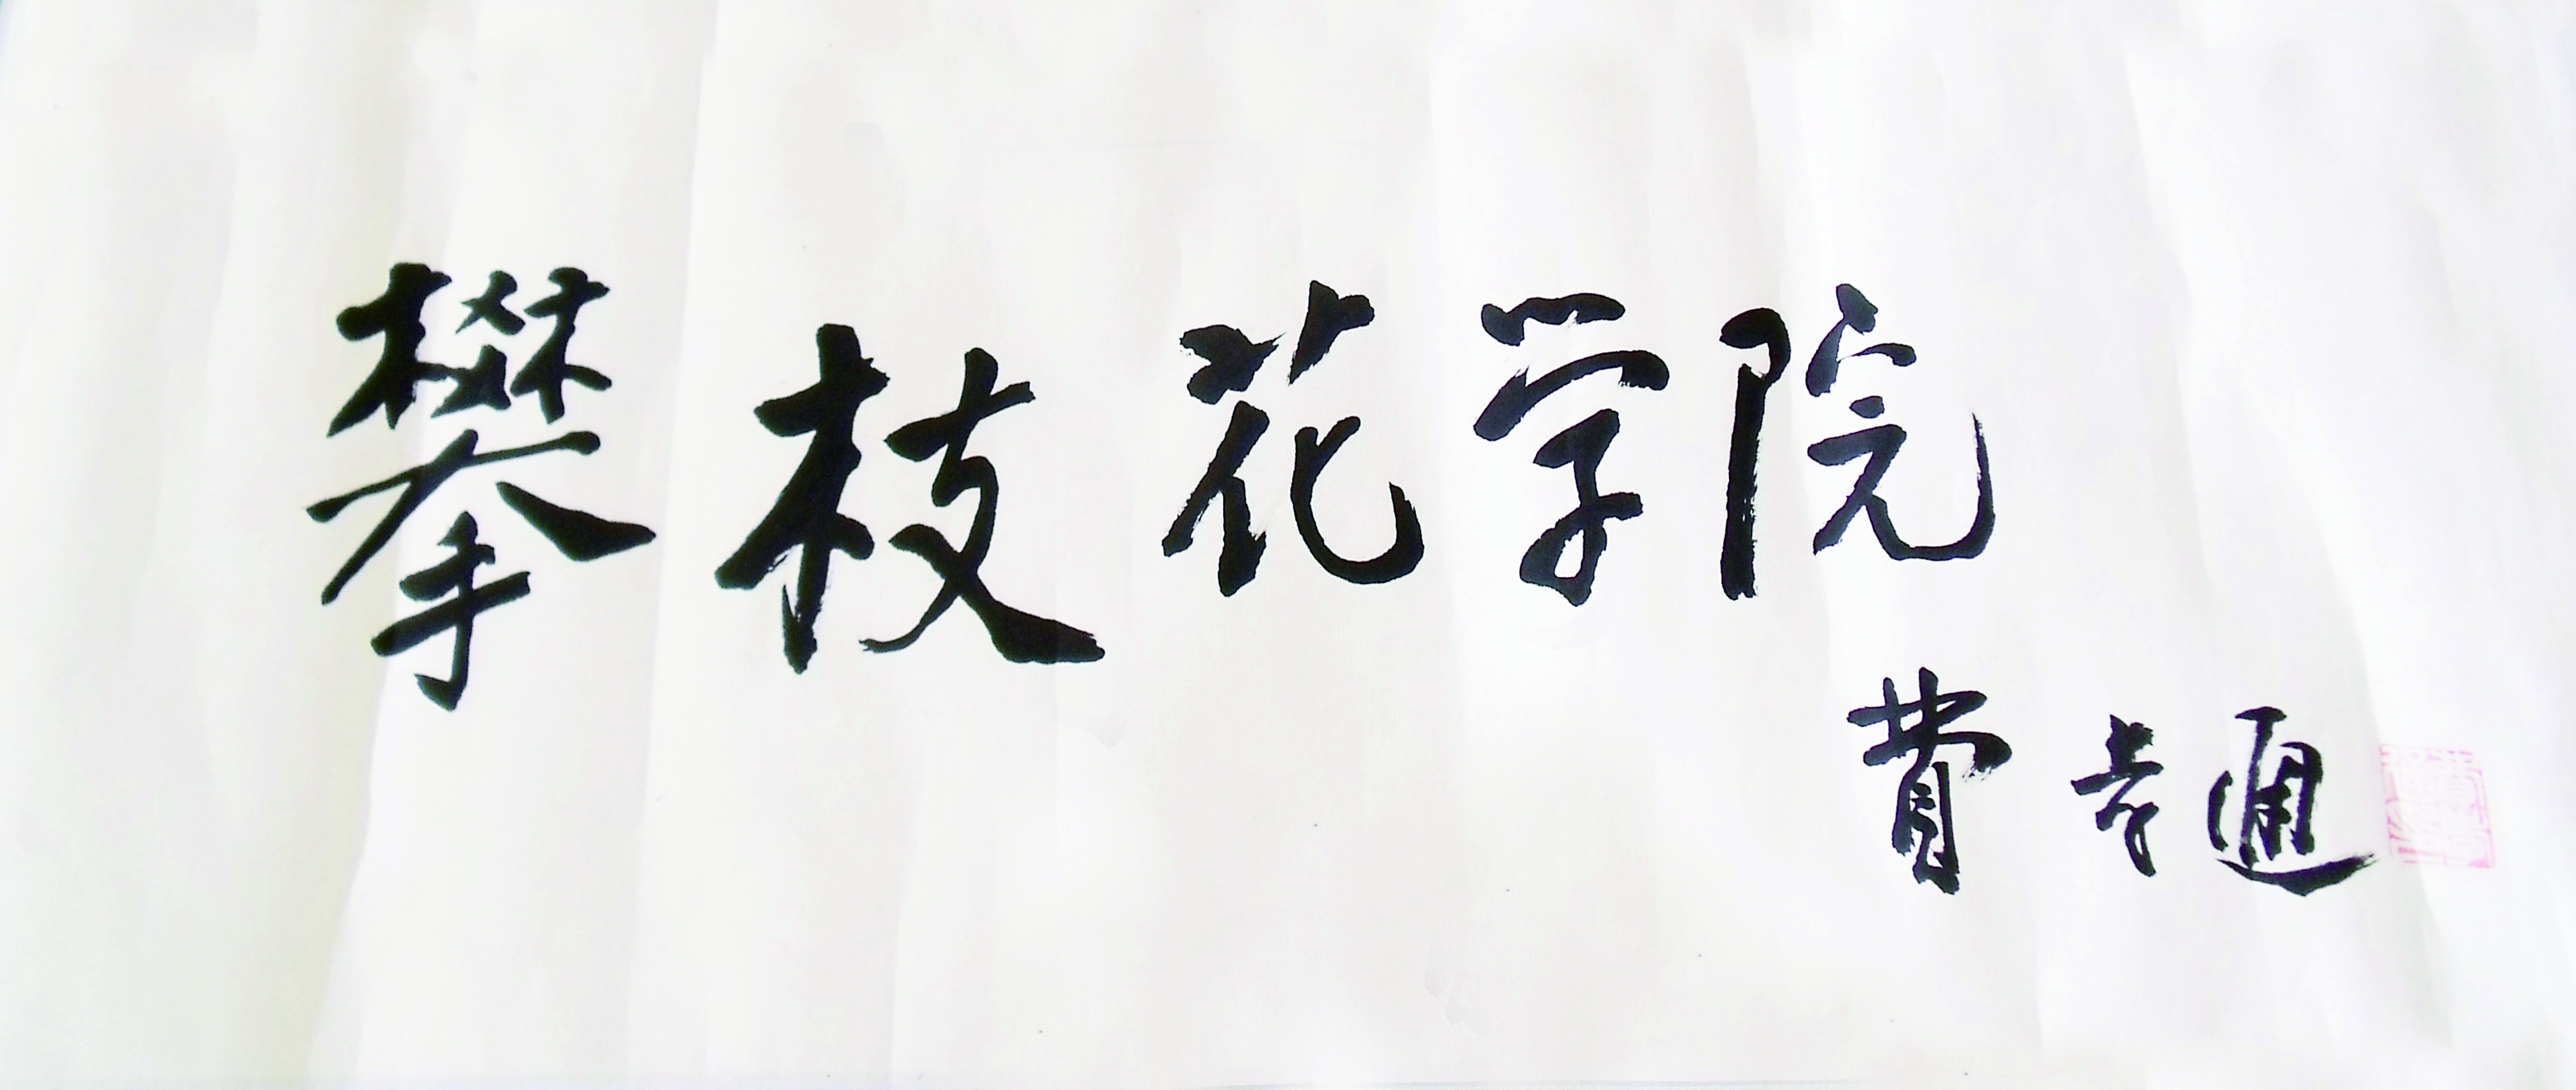 攀枝花学院
費孝通